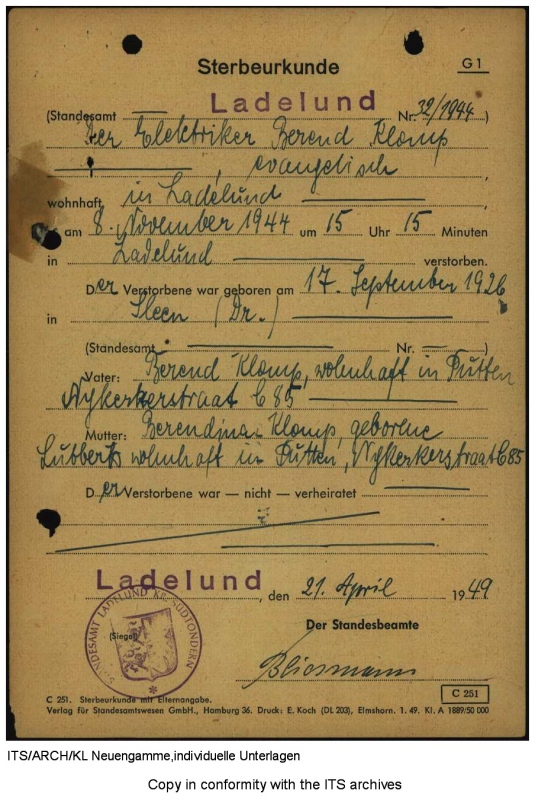 Sterbeurkunde
G 1
(Standesamt — Ladelund Nr. 32/1944)
Der Elektriker Berend Klomp
, evangelisch,
wohnhaft in Ladelund,
ist am 8. November 1944 um 15 Uhr 15 Minuten
in Ladelund verstorben.
Der Verstorbene war geboren am 17. September 1926
in Sleen (Dr.)
(Standesamt — Nr. —)
Vater: Berend Klomp, wohnhaft in Putten
Nykerkerstraat C 85
Mutter: Berendina Klomp, geborene
Lubberts wohnhaft in Putten, Nykerkerstraat C 85
Der Verstorbene war — nicht — verheiratet
Ladelund, den 21. April 1949
Der Standesbeamte
(Siegel)
STANDESAMT LADELUND KR. SÜDTONDERN
C 251
C 251. Sterbeurkunde mit Elternangabe.
Verlag für Standesamtswesen GmbH., Hamburg 36. Druck: E. Koch (DL 203), Elmshorn. 1. 49. Kl. A 1889/50 000
ITS/ARCH/KL Neuengamme,individuelle Unterlagen
Copy in conformity with the ITS archives